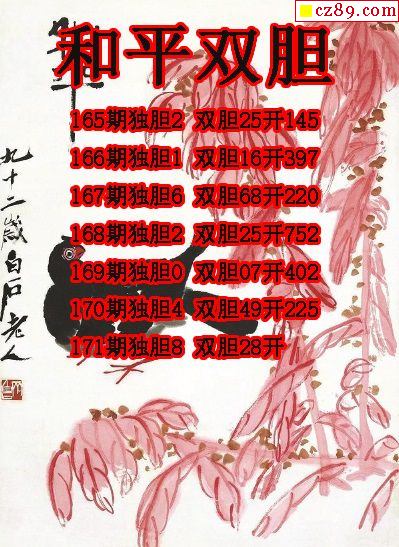 cz89.com
和平双胆
165期独胆2 双胆25开145
166期独胆1 双胆16开397
167期独胆6 双胆68开220
168期独胆2 双胆25开752
169期独胆0 双胆07开402
170期独胆4 双胆49开225
171期独胆8 双胆28开
九十二岁白石老人